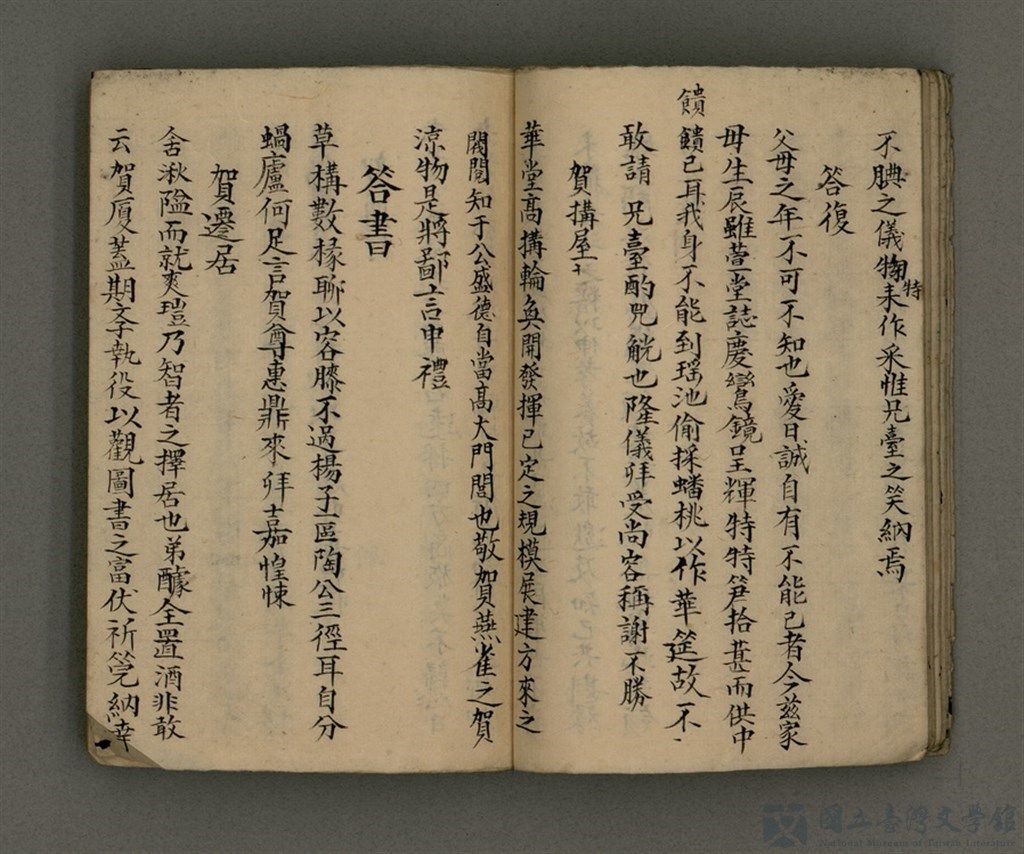 不腆之儀物特耒作采惟兄臺之笑納焉
答復
父母之年不可不知也愛日誠自有不能己者今茲家
母生辰雖萱堂誌慶鸞鏡呈輝特特笋拾葚而供中
饋
饋已耳我身不能到瑶池偷採蟠桃以作華筵故不
敢請 兄臺酌兕觥也隆儀拜受尚容稱謝不勝
賀搆屋
華堂高搆輪奐開發揮已定之規模展建方來之
閥閱知于公盛德自當高大門閭也敬賀燕雀之賀
涼物是將鄙言申禮
答書
草構數椽聊以容膝不過揚子一區陶公三徑耳自分
蝸廬何足言賀尊惠鼎來拜嘉惶悚
賀遷居
舍湫隘而就爽塏乃智者之擇居也弟醵全置酒非敢
云賀厦蓋期文字執役以觀圖書之富伏祈筦納幸
國立臺灣文學館
National Museum of Taiwan Literature